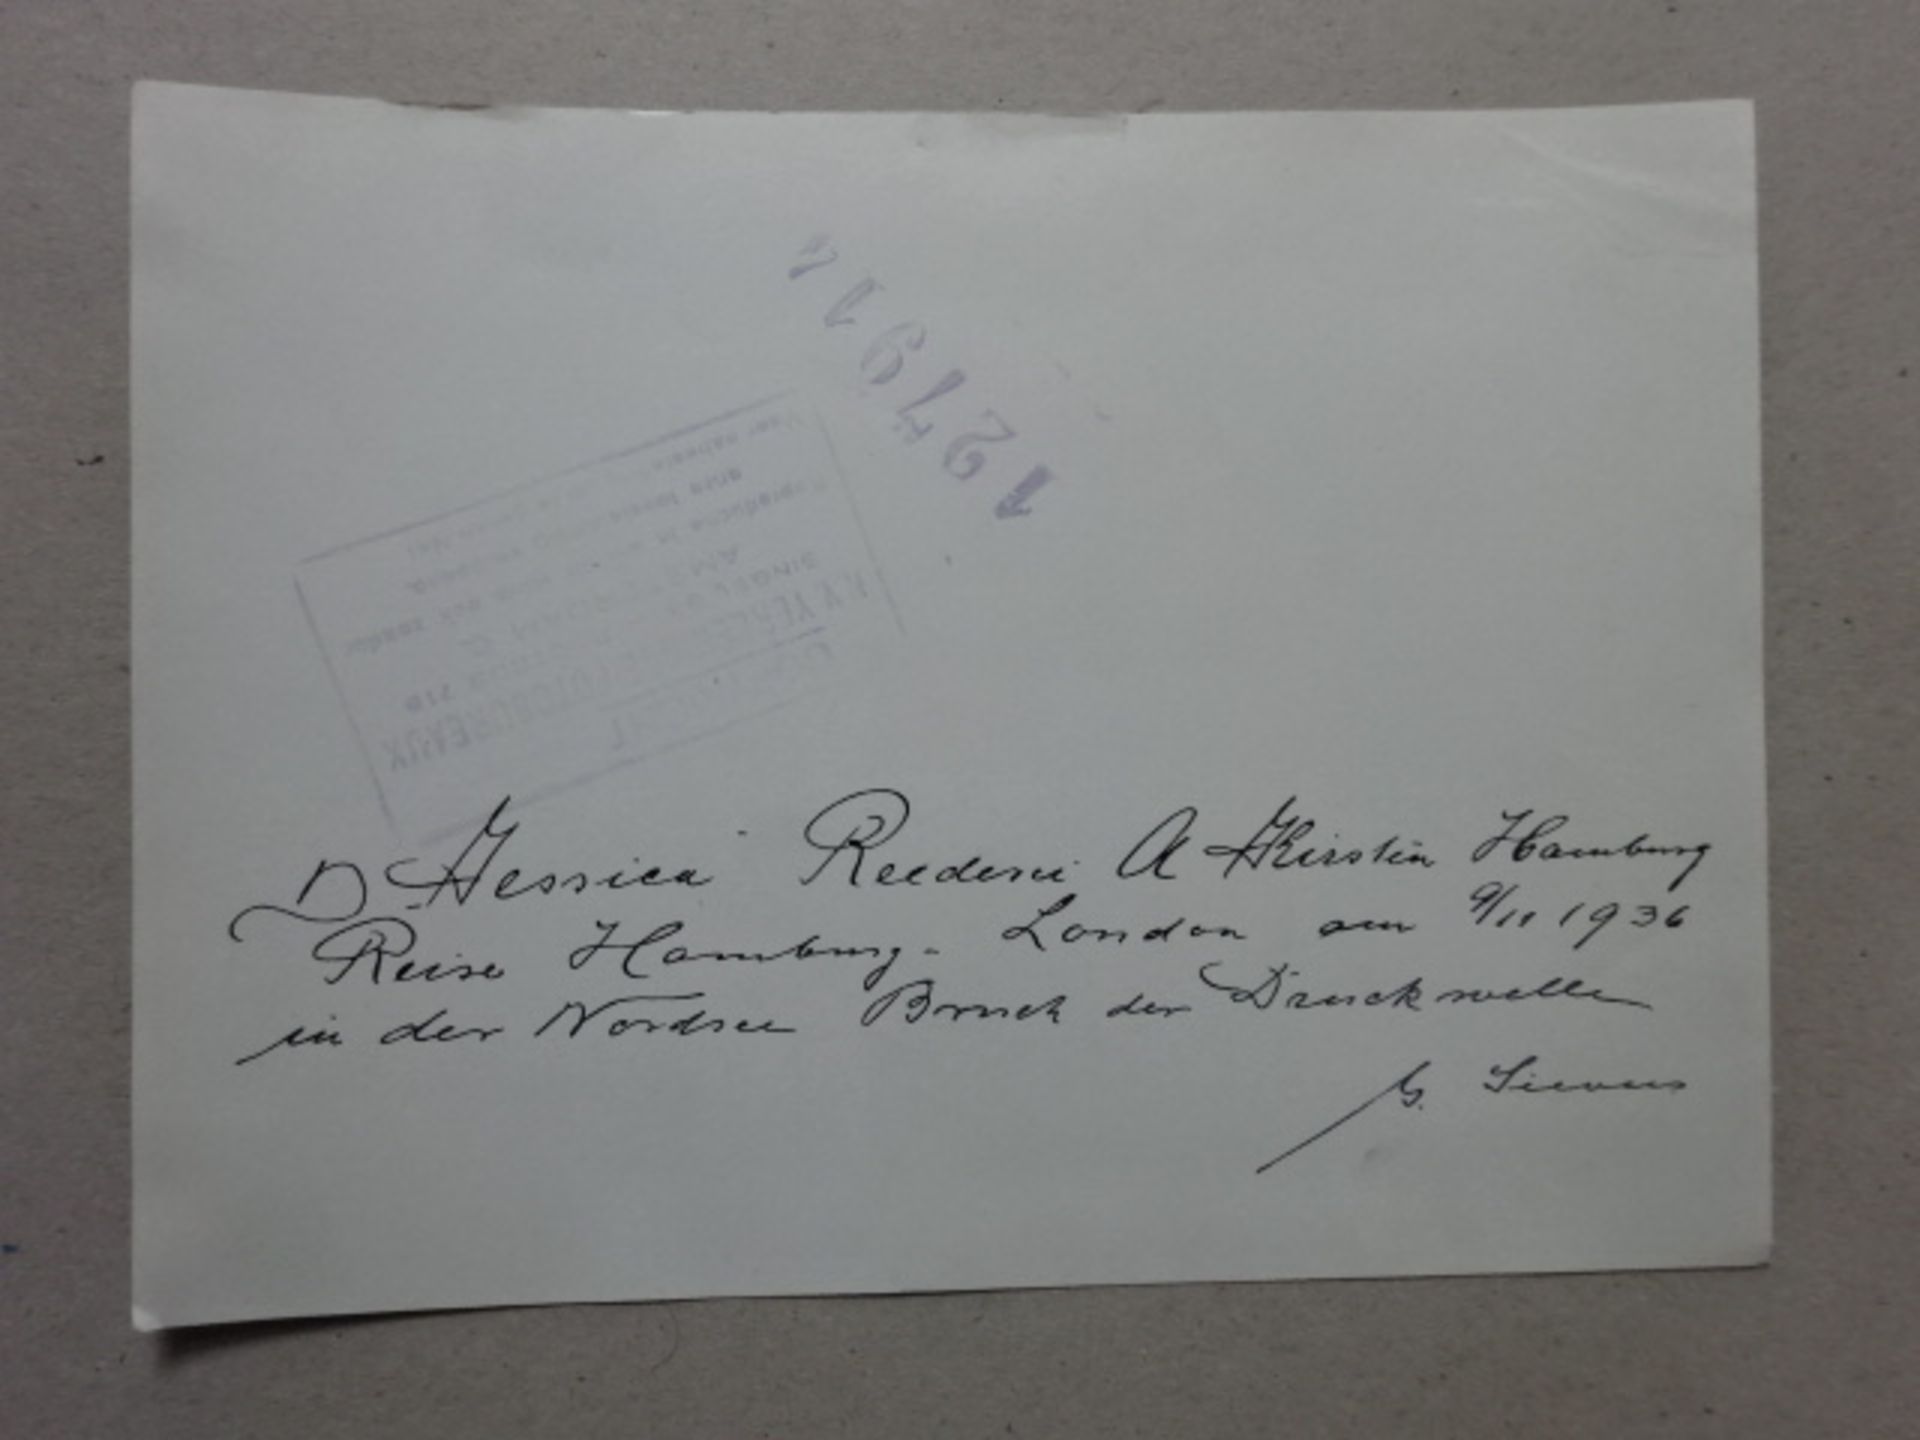 127911
COPYRIGHT
N.V. VEREENIGDE FOTOBUREAUX
SINGEL
AMSTERDAM C.
D. Jessica Reederei A Kirsten Hamburg
Reise Hamburg - London am 9/11 1936
in der Nordsee Bruch der Druckwelle
G. Sievers